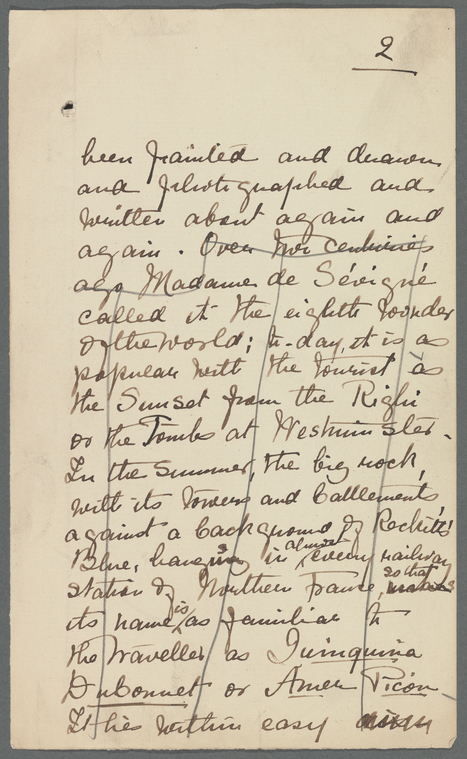 2
been painted and drawn
and photographed and
written about again and
again. Over two centuries
ago Madame de Sévigné
called it the eighth wonder
of the world; to-day, it is as
popular with the tourist as
the Sunset from the Righi
or the Tombs at Westminster.
In the summer, the big rock,
with its towers and battlements
against a background of Reckitt's
Blue, hangs in almost every railway
station of Northern France, so that
its name is as familiar to
the traveller as Quinquina
Dubonnet or Amer Picon
It lies within easy